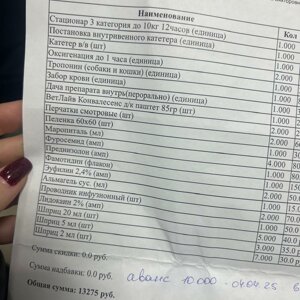 Наименование Кол
Стационар 3 категория до 10кг 12часов (единица) 1.000
Постановка внутривенного катетера (единица) 1.000
Катетер в/в (шт) 1.000
Оксигенация до 1 часа (единица) 2.000
Тропонин (собаки и кошки) (единица) 1.000
Забор крови (единица) 1.000
Дача препарата внутрь(перорально) (единица) 1.000
ВетЛайв Конвалесенс д/к паштет 85гр (шт) 1.000
Перчатки смотровые (шт)
Пеленка 60х60 (шт)
Маропиталь (мл)
Фуросемид (амп)
Преднизолон (амп)
Фамотидин (флакон)
Эуфилин 2,4% (амп)
Альмагель сус. (мл)
Проводник инфузионный (шт)
Лидокаин 2% (амп)
Шприц 20 мл (шт)
Шприц 5 мл (шт)
Шприц 2 мл (шт)
Сумма скидки: 0.0 руб.
Сумма надбавки: 0.0 руб.
Общая сумма: 13275 руб.
аванс 10 000 - 04.04.25